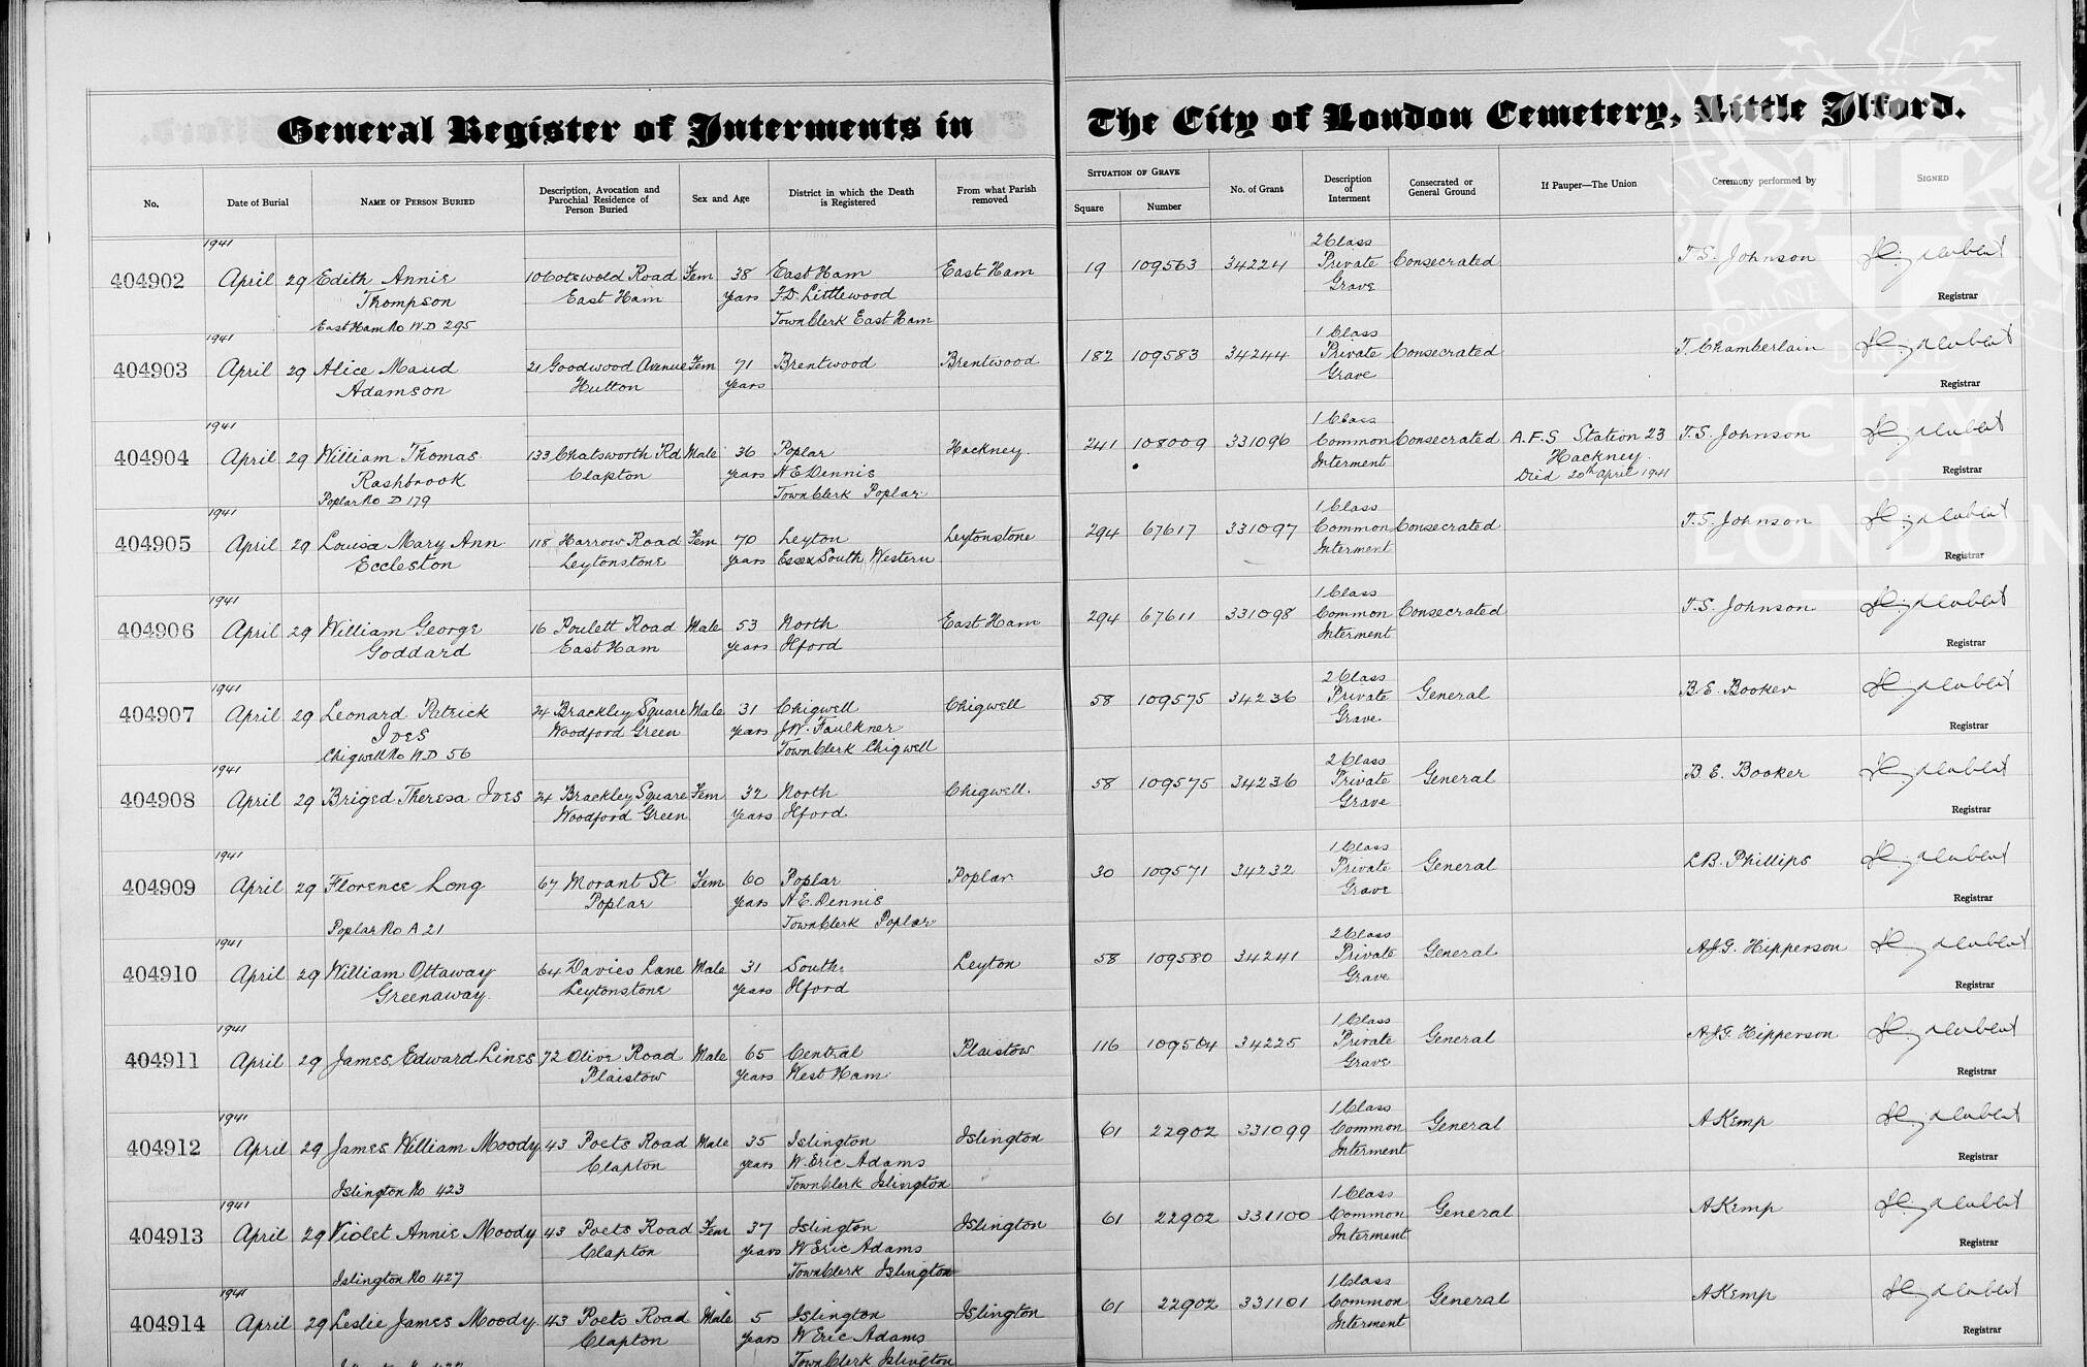 General Register of Interments in The City of London Cemetery, Little Ilford.
No. Date of Burial Name of Person Buried Description, Avocation and Parochial Residence of Person Buried Sex and Age District in which the Death is Registered From what Parish removed Situation of Grave Square Number No. of Grant Description of Interment Consecrated or General Ground If Pauper—The Union Ceremony performed by Signed
1941 2 Class
404902 April 29 Edith Annie 10 Cotswold Road Fem 38 East Ham East Ham 19 109563 34224 Private Consecrated T.S. Johnson
Thompson East Ham years F.D. Littlewood Grave Registrar
East Ham No W.D 295 Town Clerk East Ham
1941 1 Class
404903 April 29 Alice Maud 21 Goodwood Avenue Fem 71 Brentwood Brentwood 182 109583 34244 Private Consecrated T. Chamberlain
Adamson Hutton years Grave Registrar
1941 1 Class
404904 April 29 William Thomas 133 Chatsworth Rd Male 36 Poplar Hackney 241 108009 331096 Common Consecrated A.F.S Station 23 T.S. Johnson
Rashbrook Clapton years H.E. Dennis Interment Hackney. Registrar
Poplar No D 179 Town Clerk Poplar Died 20th April 1941
1941 1 Class
404905 April 29 Louisa Mary Ann 118 Harrow Road Fem 70 Leyton Leytonstone 294 67617 331097 Common Consecrated T.S. Johnson
Eccleston Leytonstone years Essex South Western Interment Registrar
1941 1 Class
404906 April 29 William George 16 Poulett Road Male 53 North East Ham 294 67611 331098 Common Consecrated T.S. Johnson
Goddard East Ham years Ilford Interment Registrar
1941 2 Class
404907 April 29 Leonard Patrick 24 Brackley Square Male 31 Chigwell Chigwell 58 109575 34236 Private General B.E. Booker
Ives Woodford Green years J.W. Faulkner Grave Registrar
Chigwell No W.D 56 Town Clerk Chigwell
1941 2 Class
404908 April 29 Briged Theresa Ives 24 Brackley Square Fem 32 North Chigwell. 58 109575 34236 Private General B.E. Booker
Woodford Green years Ilford Grave Registrar
1941 1 Class
404909 April 29 Florence Long 67 Morant St Fem 60 Poplar Poplar 30 109571 34232 Private General L.B. Phillips
Poplar years H.E. Dennis Grave Registrar
Poplar No A 21 Town Clerk Poplar
1941 2 Class
404910 April 29 William Ottaway 64 Davies Lane Male 31 South Leyton 58 109580 34241 Private General A.J.G. Hipperson
Greenaway. Leytonstone years Ilford Grave Registrar
1941 1 Class
404911 April 29 James Edward Lines 72 Olive Road Male 65 Central Plaistow 116 109564 34225 Private General A.J.G. Hipperson
Plaistow years West Ham Grave Registrar
1941 1 Class
404912 April 29 James William Moody 43 Poets Road Male 35 Islington Islington 61 22902 331099 Common General A Kemp
Clapton years W. Eric Adams Interment Registrar
Islington No 423 Town Clerk Islington
1941 1 Class
404913 April 29 Violet Annie Moody 43 Poets Road Fem 37 Islington Islington 61 22902 331100 Common General A Kemp
Clapton years W Eric Adams Interment Registrar
Islington No 427 Town Clerk Islington
1941 1 Class
404914 April 29 Leslie James Moody 43 Poets Road Male 5 Islington Islington 61 22902 331101 Common General A Kemp
Clapton years W Eric Adams Interment Registrar
Town Clerk Islington
DOMINE DIRIGE NOS
CITY
OF
LONDON